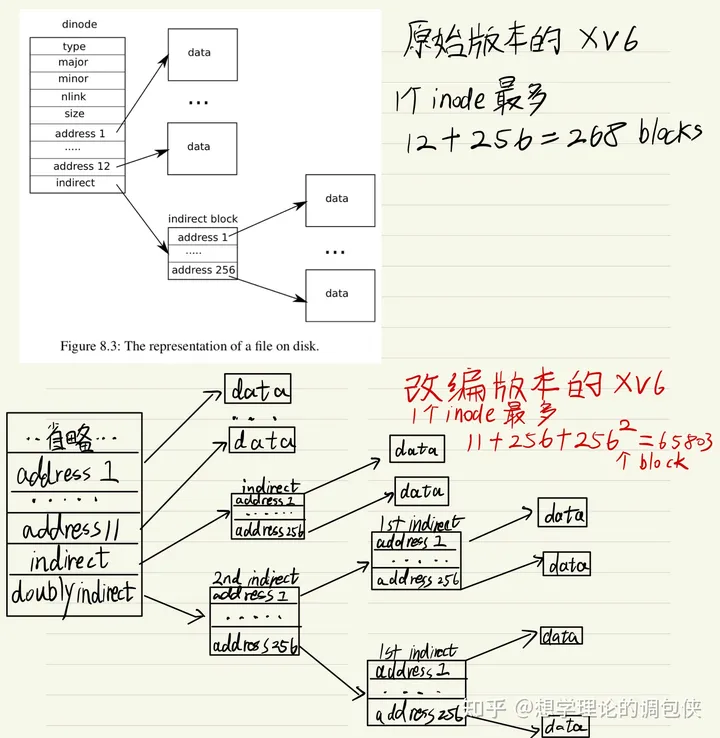 dinode
type
major
minor
nlink
size
address 1
.....
address 12
indirect
data
...
data
indirect block
address 1
.....
address 256
data
...
data
Figure 8.3: The representation of a file on disk.
原始版本的 XV6
1个inode最多
12+256=268 blocks
改编版本的 XV6
1个inode最多
11+256+256²=65803
个block
..省略...
address 1
.....
address 11
indirect
doublyindirect
data
....
data
indirect
address 1
......
address 256
data
data
2nd indirect
address 1
.....
address 256
1st indirect
address 1
.....
address 256
data
data
1st indirect
address 1
....
address 256
data
data
知乎 @想学理论的调包侠